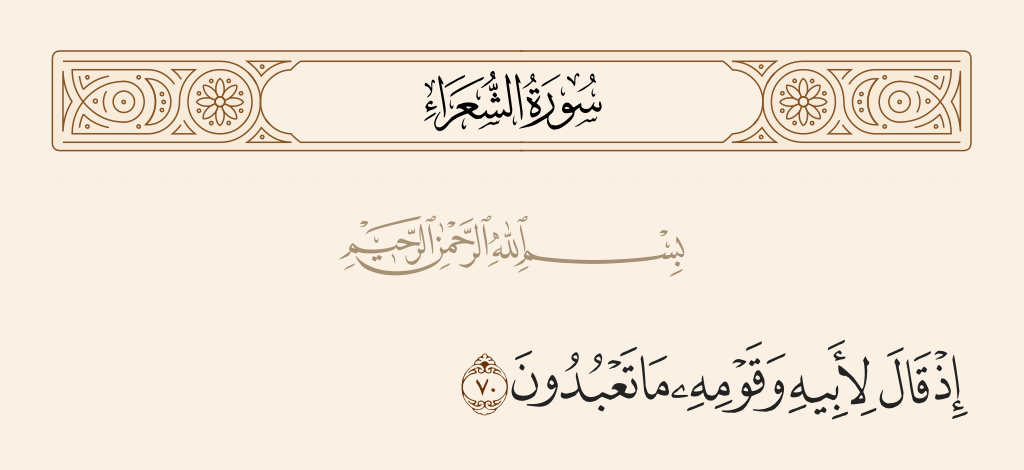 سُورَةُ الشُّعَرَاءِ
بِسْمِ ٱللَّهِ ٱلرَّحْمَٰنِ ٱلرَّحِيمِ
إِذْ قَالَ لِأَبِيهِ وَقَوْمِهِۦ مَا تَعْبُدُونَ ٧٠